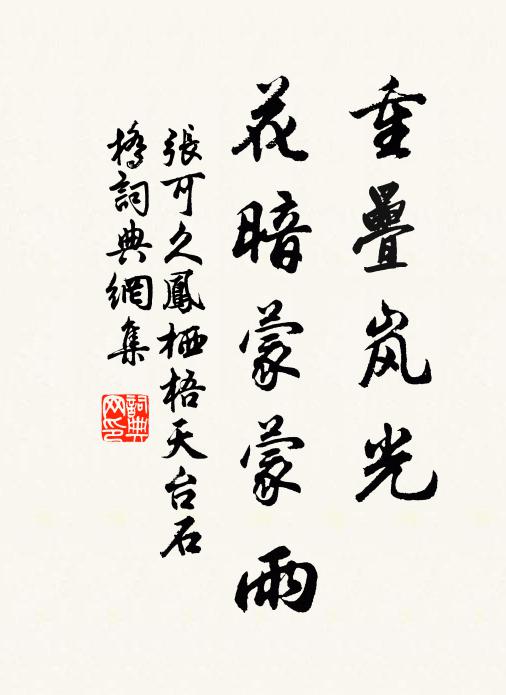 重疊岚光
花暗蒙蒙雨
張可久鳳栖梧天台石
橋詞典網集
詞典
网印